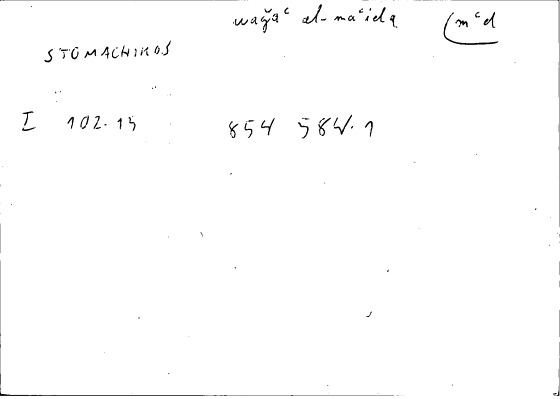 waǧaʿ al-maʿida (mʿd
STOMACHIKOS
I 102.15 854 584.1